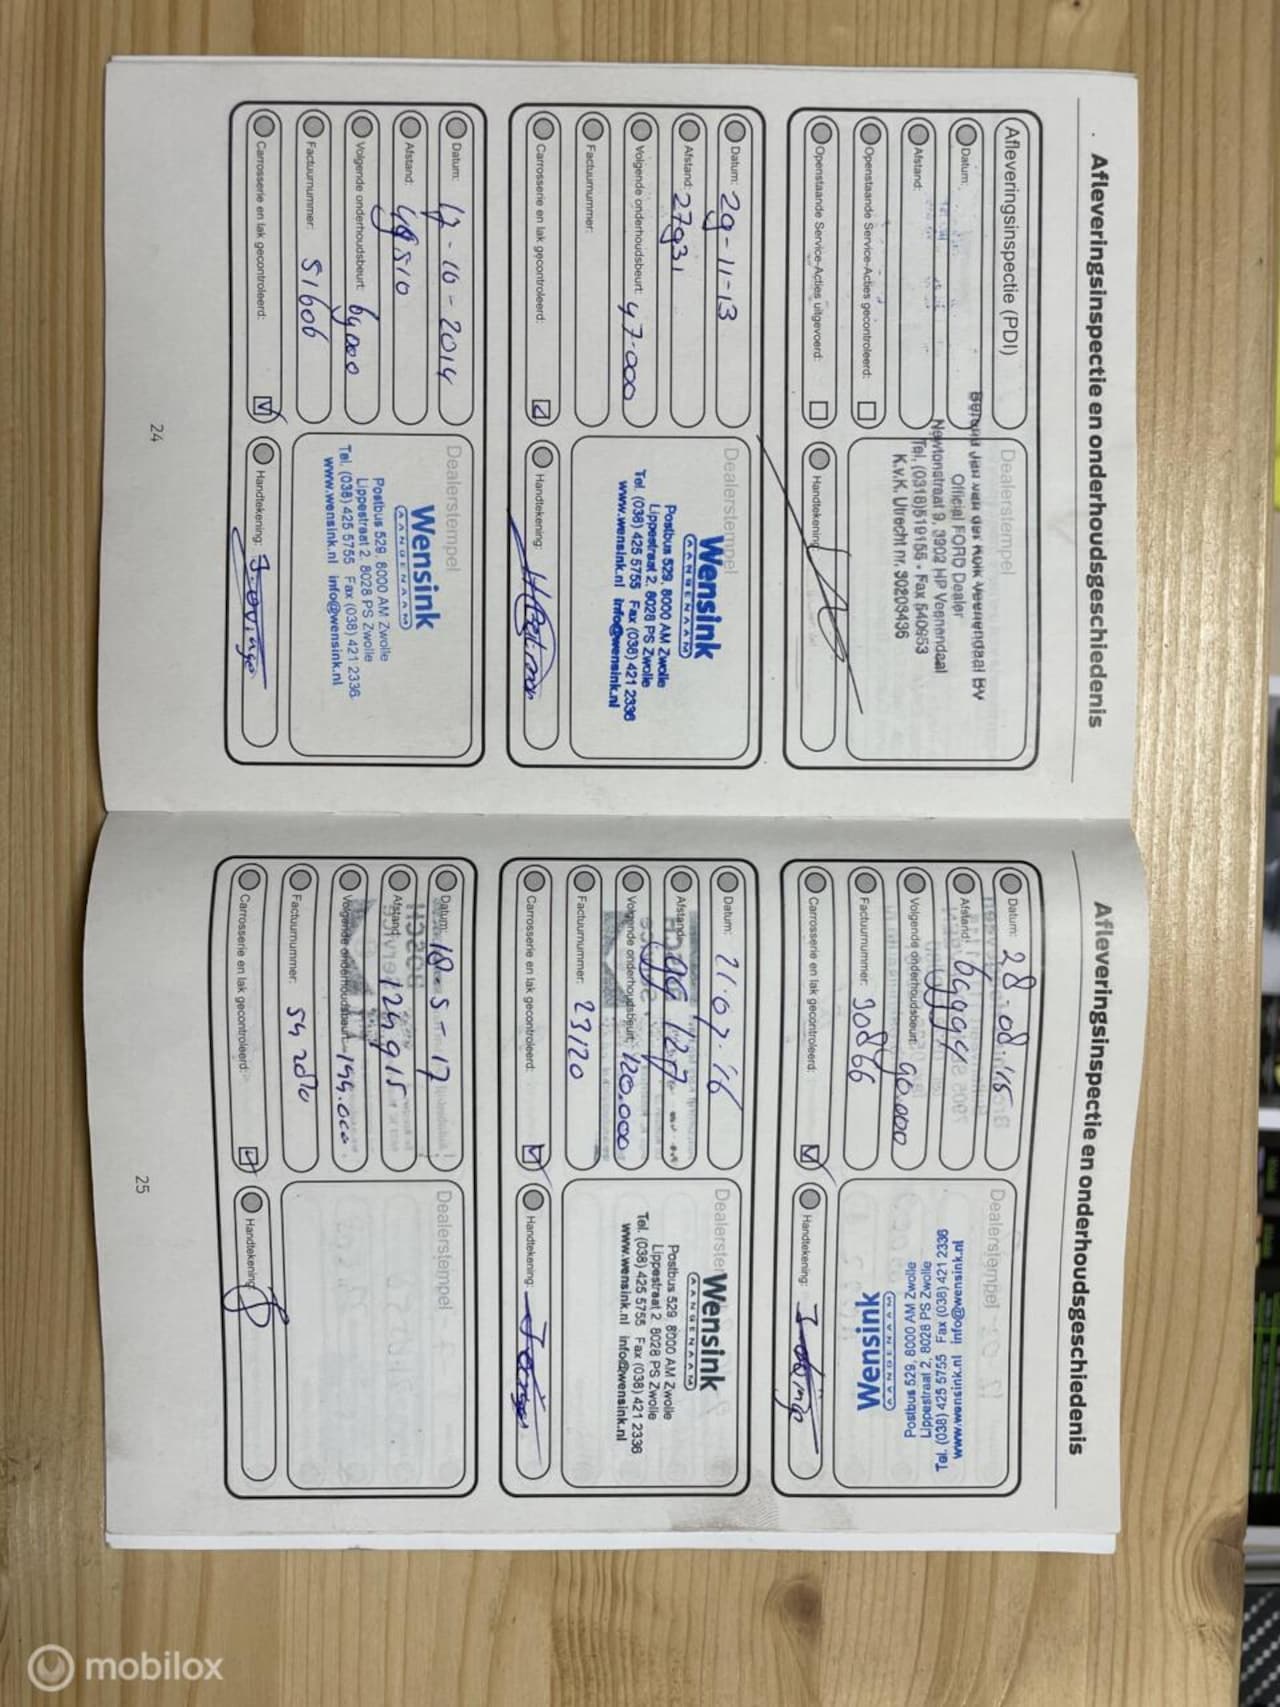 Afleveringsinspectie en onderhoudsgeschiedenis
Afleveringsinspectie (PDI)
Datum:
Afstand:
Openstaande Service-Acties gecontroleerd:
Openstaande Service-Acties uitgevoerd:
Dealerstempel
Veenendaal BV
Official FORD Dealer
Newtonstraat 9, 3902 HP Veenendaal
Tel. (0318)519155 - Fax 540953
K.v.K. Utrecht nr. 30203436
Handtekening:
Datum: 29-11-13
Afstand: 27931
Volgende onderhoudsbeurt: 47.000
Factuurnummer:
Carrosserie en lak gecontroleerd:
Dealerstempel
Wensink
AANGENAAM
Postbus 529, 8000 AM Zwolle
Lippestraat 2, 8028 PS Zwolle
Tel. (038) 425 5755 Fax (038) 421 2336
www.wensink.nl info@wensink.nl
Handtekening:
Datum: 17-10-2014
Afstand:
Volgende onderhoudsbeurt: 69000
Factuurnummer: 51606
Carrosserie en lak gecontroleerd:
Dealerstempel
Wensink
AANGENAAM
Postbus 529, 8000 AM Zwolle
Lippestraat 2, 8028 PS Zwolle
Tel. (038) 425 5755 Fax (038) 421 2336
www.wensink.nl info@wensink.nl
Handtekening:
24
Afleveringsinspectie en onderhoudsgeschiedenis
Datum: 28-08-'15
Afstand: 69994
Volgende onderhoudsbeurt: 90.000
Factuurnummer: 30866
Carrosserie en lak gecontroleerd:
Dealerstempel
Wensink
AANGENAAM
Postbus 529, 8000 AM Zwolle
Lippestraat 2, 8028 PS Zwolle
Tel. (038) 425 5755 Fax (038) 421 2336
www.wensink.nl info@wensink.nl
Handtekening:
Datum: 21.07.'16
Afstand:
Volgende onderhoudsbeurt: 120.000
Factuurnummer: 23120
Carrosserie en lak gecontroleerd:
Wensink
AANGENAAM
Postbus 529, 8000 AM Zwolle
Lippestraat 2, 8028 PS Zwolle
Tel. (038) 425 5755 Fax (038) 421 2336
www.wensink.nl info@wensink.nl
Handtekening:
Datum: 18-5-17
Afstand: 124915
Volgende onderhoudsbeurt:
Factuurnummer:
Carrosserie en lak gecontroleerd:
Dealerstempel
Handtekening:
25
mobilox